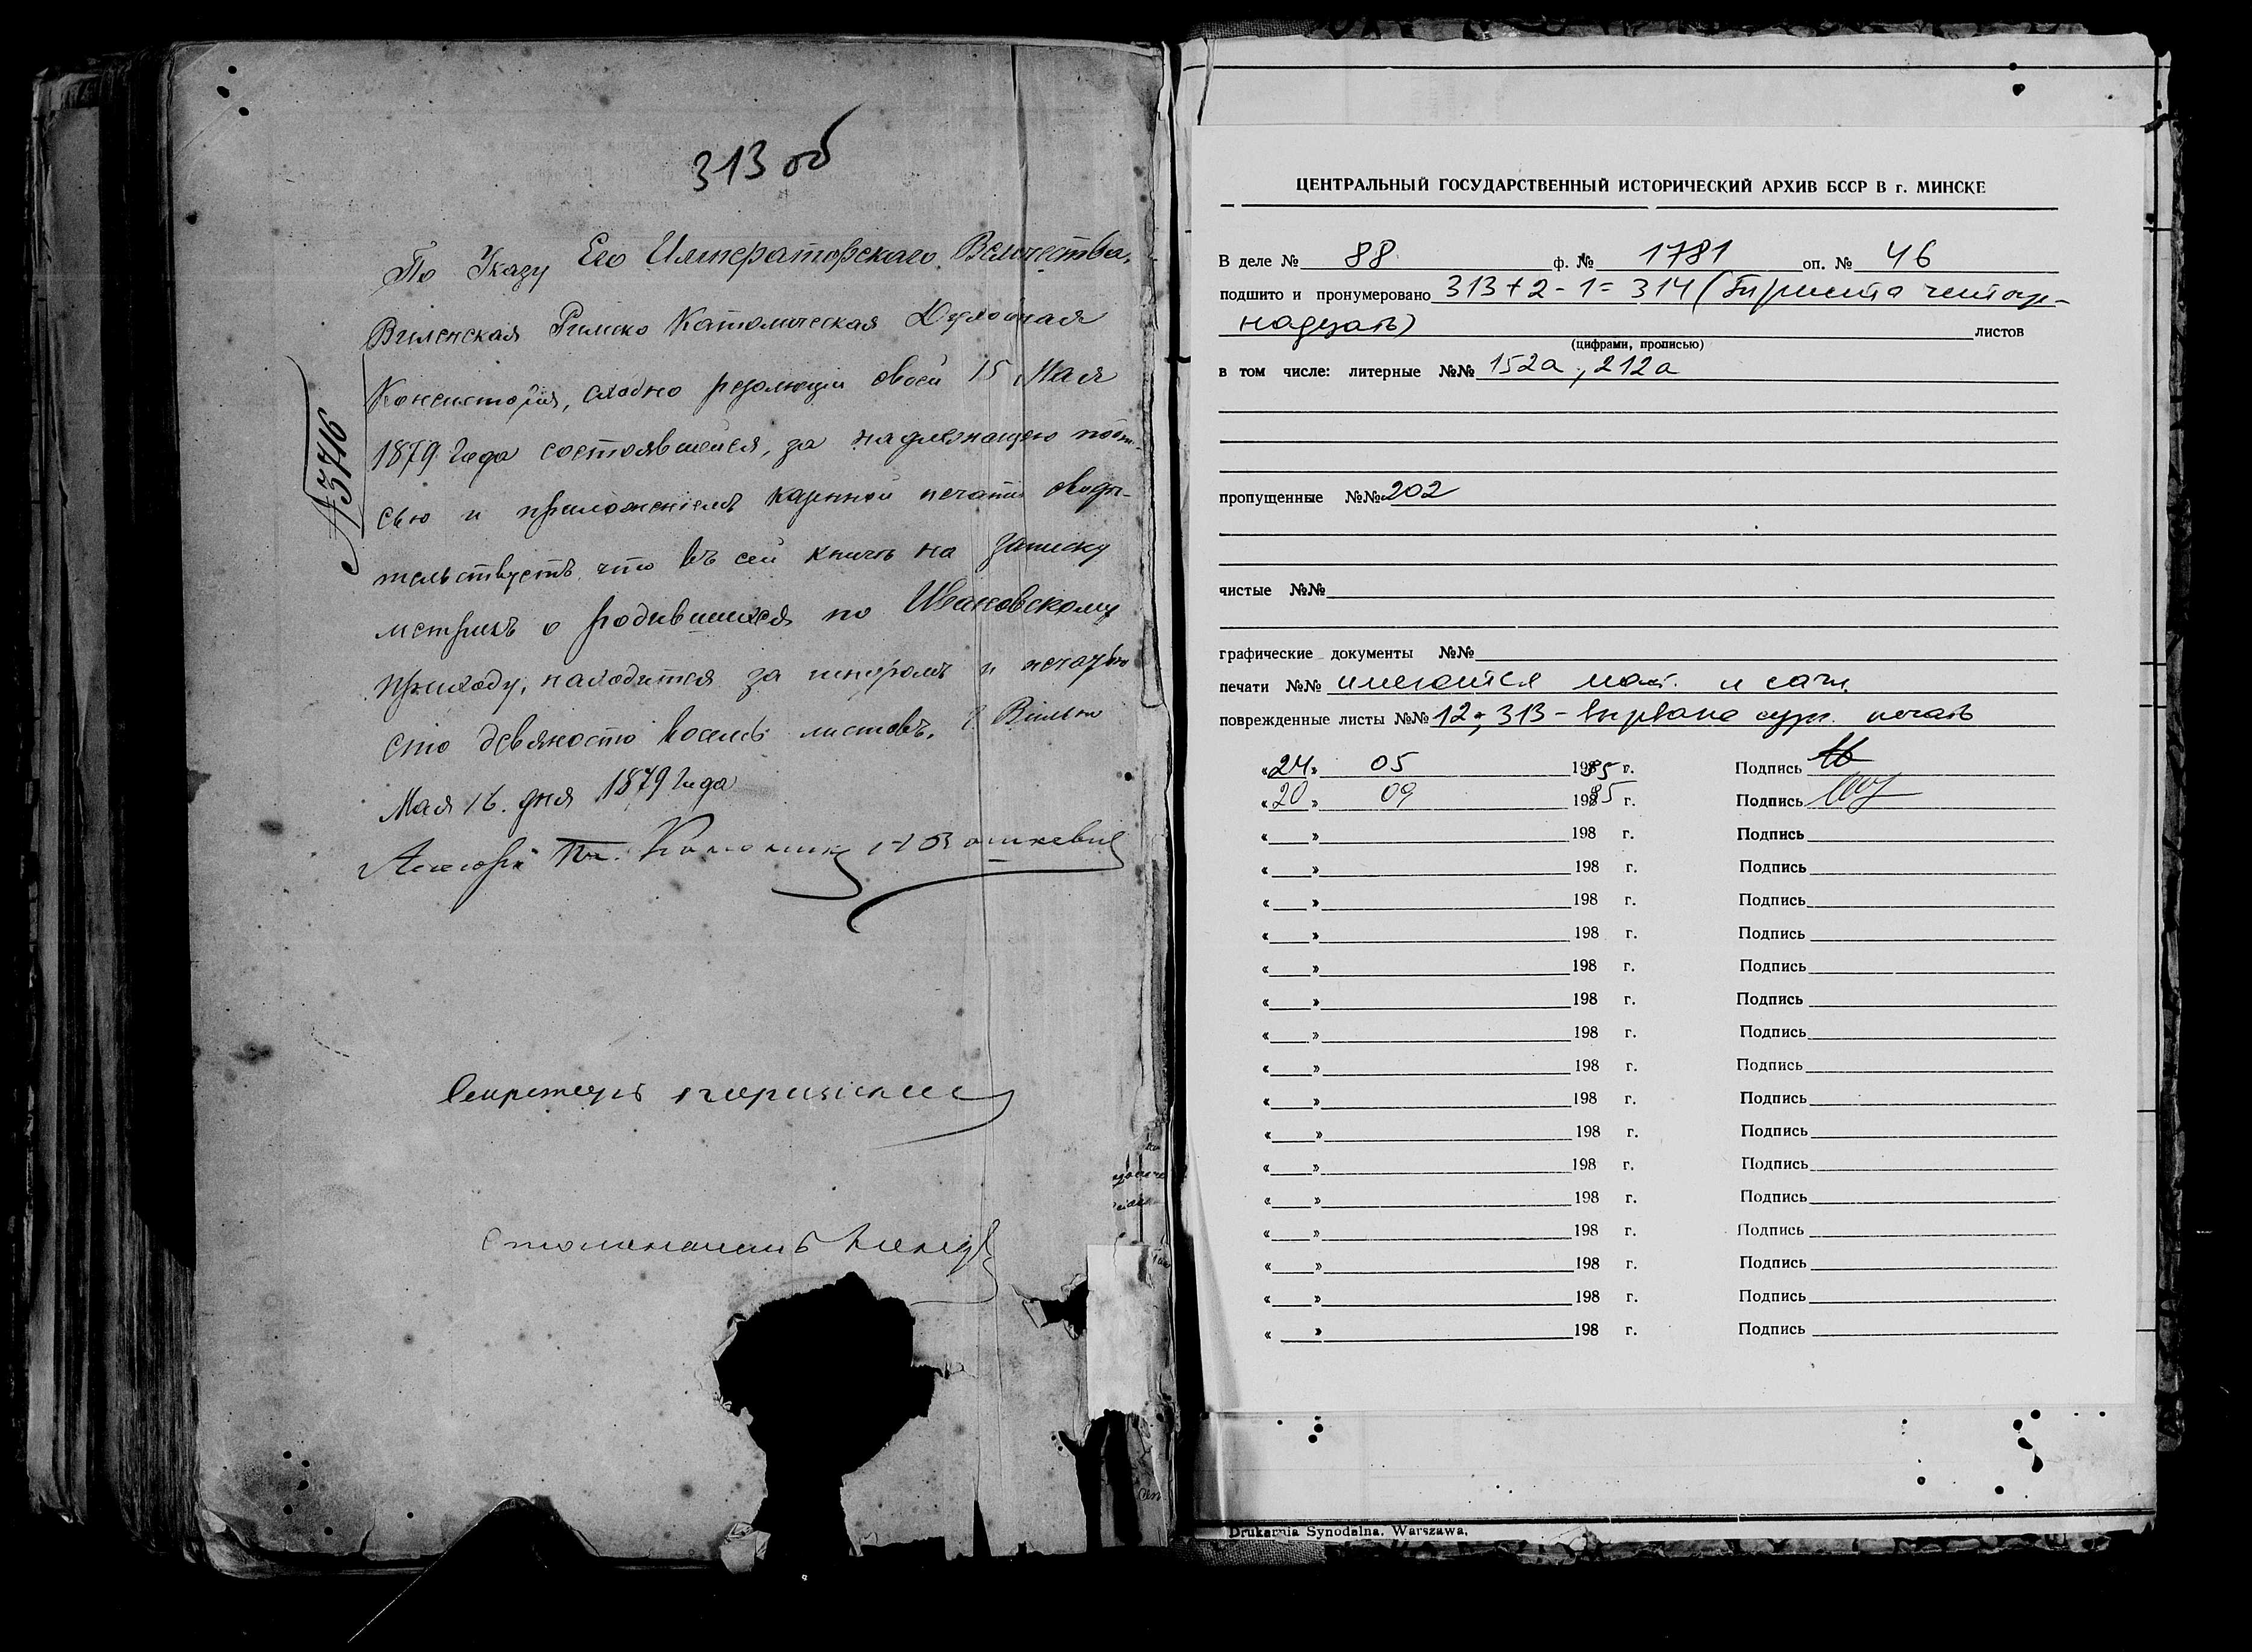 313 об
№ 3746
По Указу Его Императорскаго Величества,
Виленская Римско Католическая Духовная
Консисторія, сходно резолюціи своей 15 Мая
1879 Года состоявшейся, за надлежащею подпи-
сью и приложеніемъ казенной печати свидѣ-
тельствуетъ, что въ сей книгѣ на записку
метрикъ о родившихся по Ивановскому
приходу, находится за шнуромъ и печатью
сто девяносто восемь листовъ. Г. Вильно
Мая 16 дня 1879 Года
Секретарь
Столоначальникъ
ЦЕНТРАЛЬНЫЙ ГОСУДАРСТВЕННЫЙ ИСТОРИЧЕСКИЙ АРХИВ БССР В г. МИНСКЕ
В деле № 88 ф. № 1781 оп. № 46
подшито и пронумеровано 313+2-1=314 (триста четыр-
надцать) листов
(цифрами, прописью)
в том числе: литерные №№ 152а, 212а
пропущенные №№ 202
чистые №№
графические документы №№
печати №№ имеются маст. и сург.
поврежденные листы №№ 12, 313 - вырвана сург. печать
«24» 05 1985 г. Подпись
«20» 09 1985 г. Подпись
«  » 198 г. Подпись
«  » 198 г. Подпись
«  » 198 г. Подпись
«  » 198 г. Подпись
«  » 198 г. Подпись
«  » 198 г. Подпись
«  » 198 г. Подпись
«  » 198 г. Подпись
«  » 198 г. Подпись
«  » 198 г. Подпись
«  » 198 г. Подпись
«  » 198 г. Подпись
«  » 198 г. Подпись
«  » 198 г. Подпись
«  » 198 г. Подпись
«  » 198 г. Подпись
Drukarnia Synodalna. Warszawa.